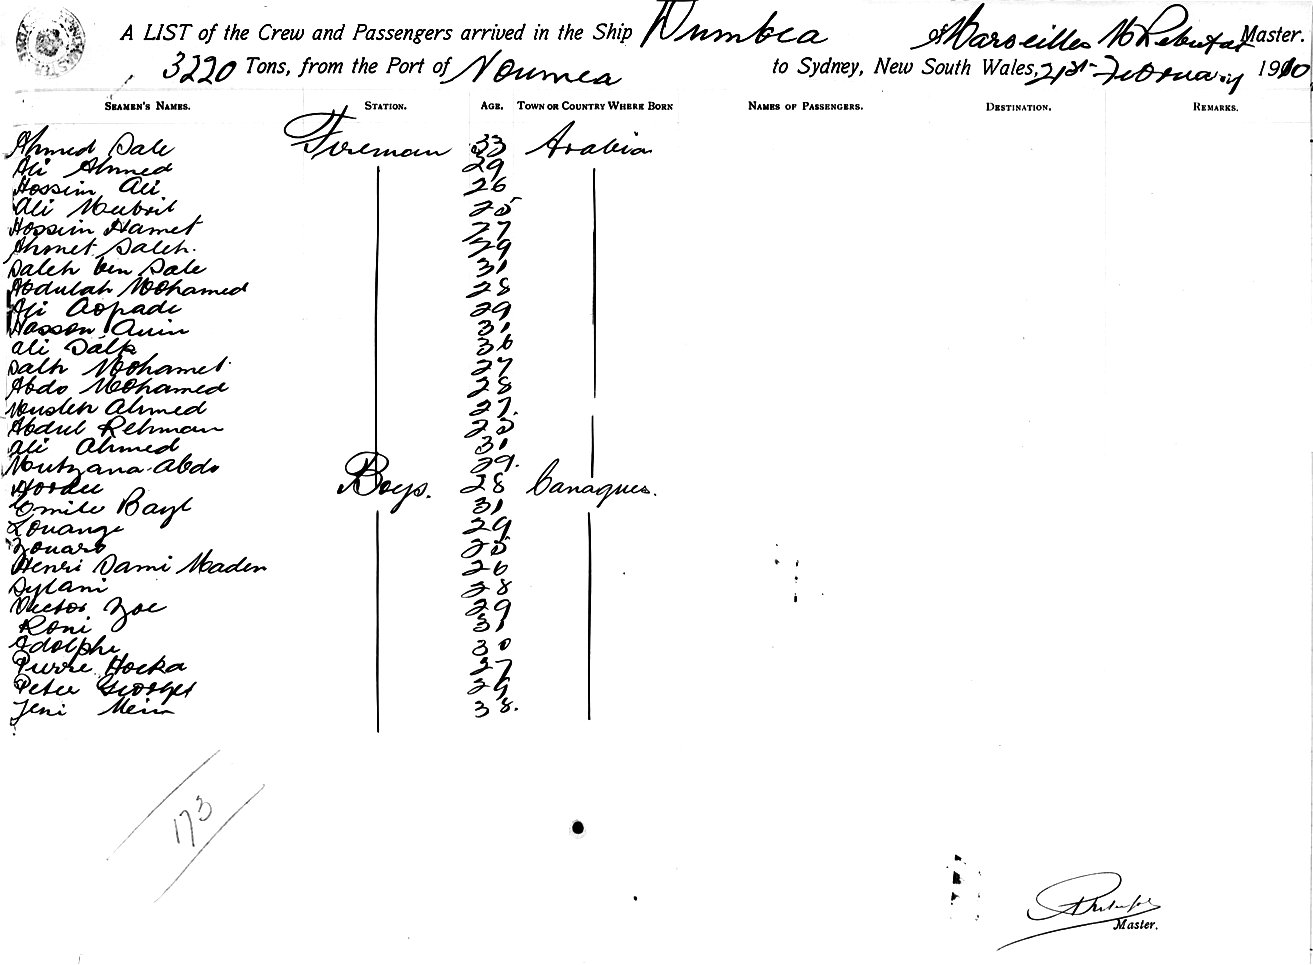 A LIST of the Crew and Passengers arrived in the Ship Dumbea of Marseilles Master.
3220 Tons, from the Port of Noumea to Sydney, New South Wales, 21st February 1910
SEAMEN'S NAMES. STATION. AGE. TOWN OR COUNTRY WHERE BORN NAMES OF PASSENGERS. DESTINATION. REMARKS.
Ahmed Sale Fireman 33 Arabia
Ali Ahmed 29
Hossim Ali 26
Ali 25
Hossim Hamet 27
Ahmet Saleh. 29
Saleh ben Sale 31
Abdulah Mohamed 28
Ali Aopade 29
Hasson Amin 31
Ali 36
Salh Mohamet 27
Abdo Mohamed 28
Ahmed 27.
Abdul Rehman 25
Ali Ahmed 31
Abdo 29.
Boys. 28 Canaques.
Emile Bayl 31
Louange 29
Zouaro 25
Henri Dami Maden 26
Sylani 28
Victor Zoe 29
Roni 31
Adolphe 30
Pierre Hocka 27
Peter Georges 29
Jeni 38.
173
Master.